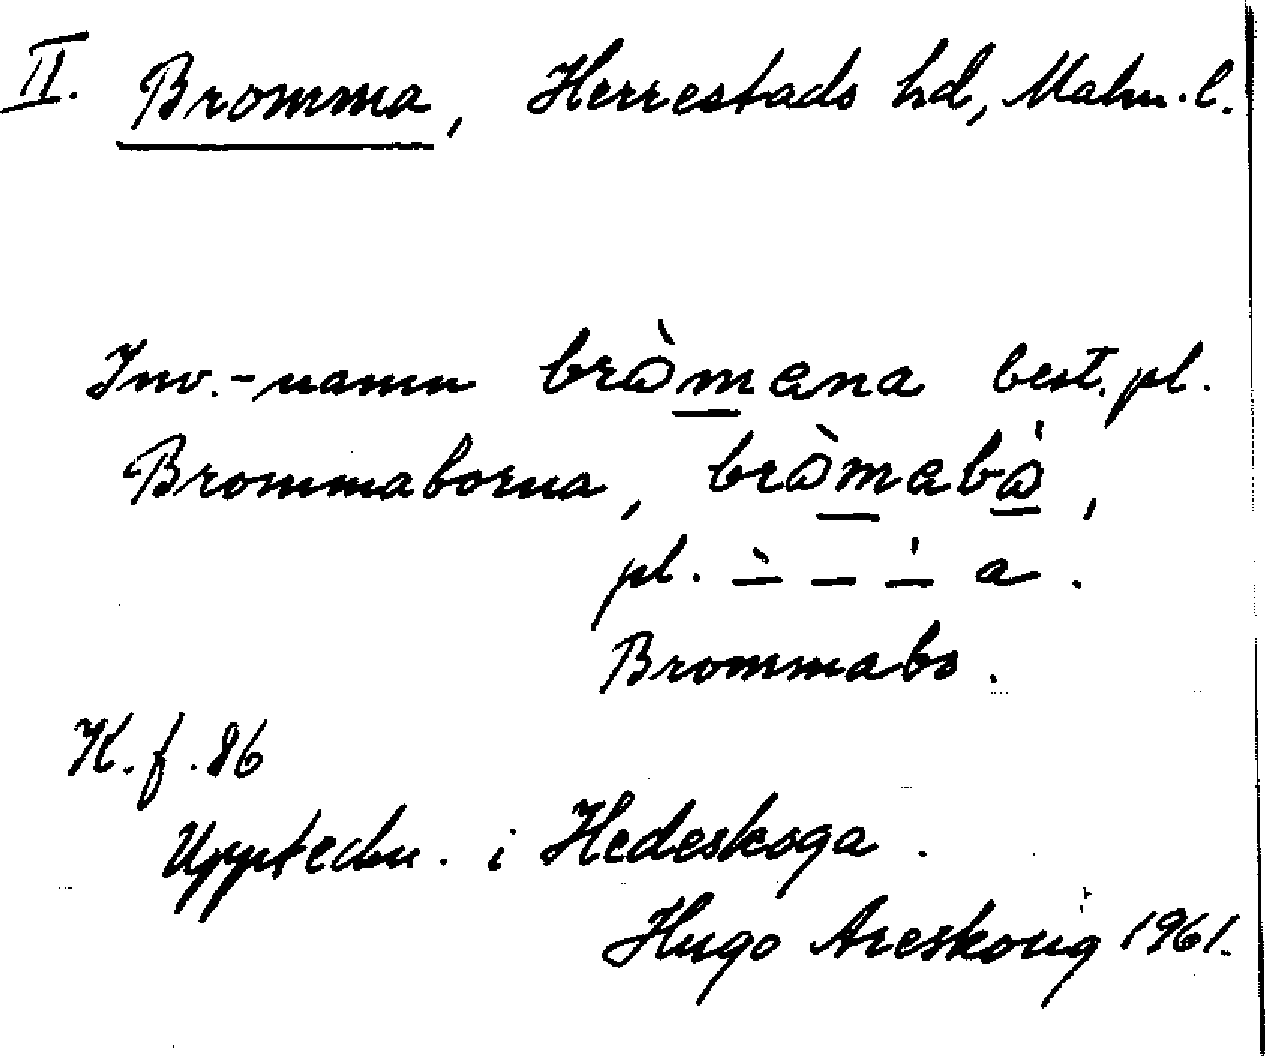 II. Bromma, Herrestads hd, Malm. l.
Inv.-namn bròmena best. pl.
Brommaborna, bròmebó,
pl. – – – a.
Brommabo.
K. f. 86
Upptechn. i Hedeskoga.
Hugo Areskoug 1961.